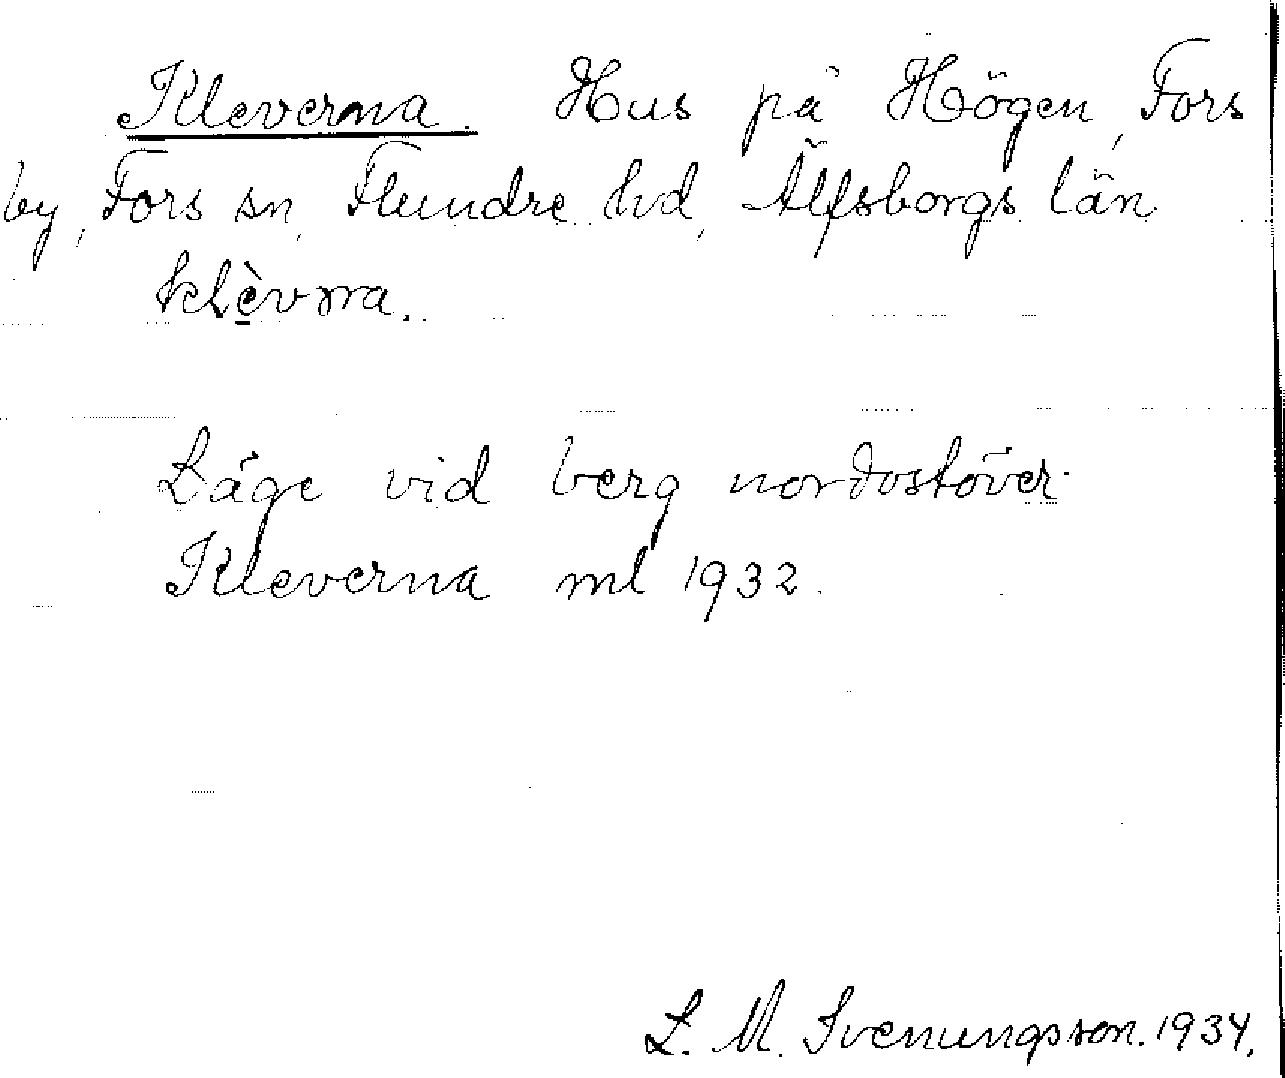 Kleverna. Hus på Högen, Fors
by, Fors sn, Flundre hd, Älfsborgs län
klèvṇa.
Läge vid berg nordostöver
Kleverna ml 1932.
L. M. Svenungsson. 1934.